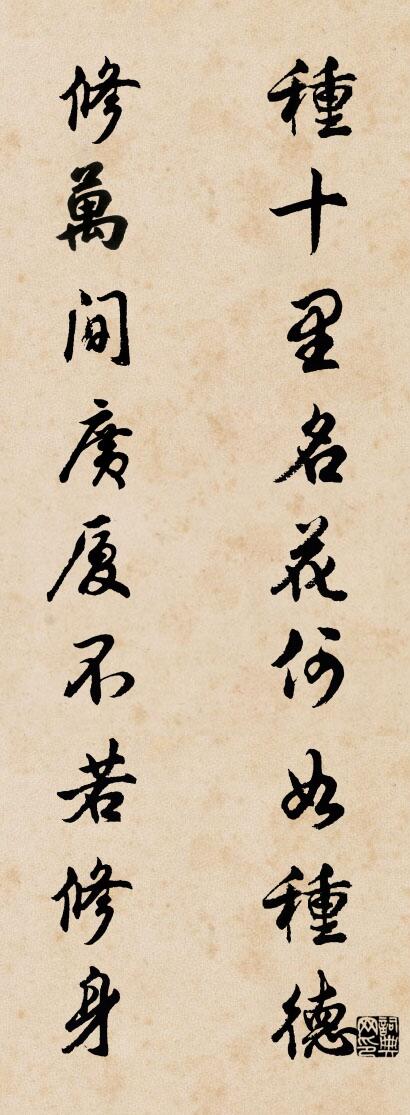 種十里名花何如種德
修萬間廣厦不若修身
詞典网印